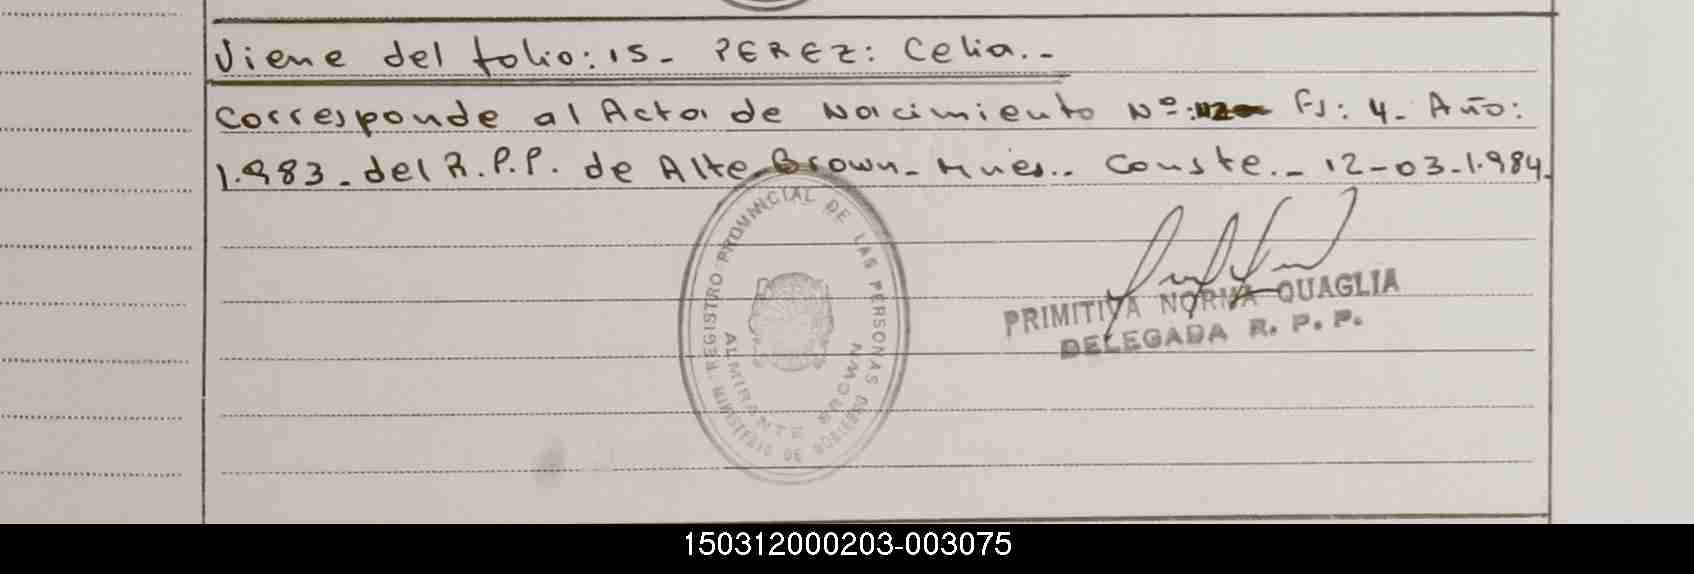 Viene del folio: 15- PEREZ: Celia.-
Corresponde al Acta de Nacimiento Nº: Fs: 4- Año:
1.983- del R.P.P. de Alte Brown- Conste.- 12-03-1.984.
REGISTRO PROVINCIAL DE LAS PERSONAS
MINISTERIO DE GOBIERNO
ALMIRANTE BROWN
PRIMITIVA NORMA QUAGLIA
DELEGADA R. P. P.
150312000203-003075